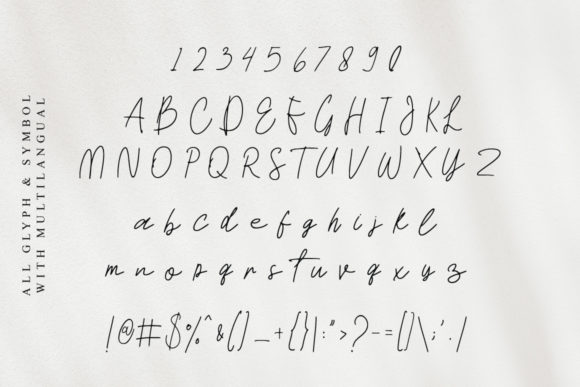 ALL GLYPH & SYMBOL
WITH MULTILANGUAL
1 2 3 4 5 6 7 8 9 0
A B C D E F G H I J K L
M N O P Q R S T U V W X Y Z
a b c d e f g h i j k l
m n o p q r s t u v q x y z
! @ # $ % ^ & ( ) _ + { } | : " > ? - = [ ] \ ; ' . /